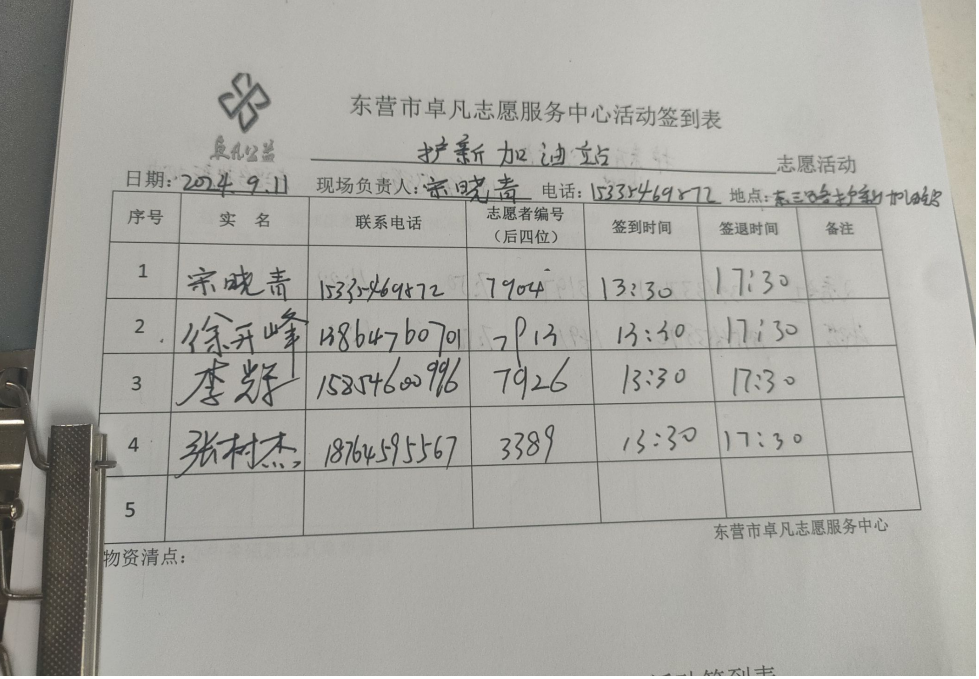 东营市卓凡志愿服务中心活动签到表
卓凡公益
护新加油站 志愿活动
日期：2024.9.11 现场负责人：宗晓青 电话：15335469872 地点：东三路护新加油站
序号 实 名 联系电话 志愿者编号（后四位） 签到时间 签退时间 备注
1 宗晓青 15335469872 7904 13:30 17:30
2 徐开峰 13864760701 7913 13:30 17:30
3 李辉 15854600996 7926 13:30 17:30
4 张树杰 18764595567 3389 13:30 17:30
5
东营市卓凡志愿服务中心
物资清点：